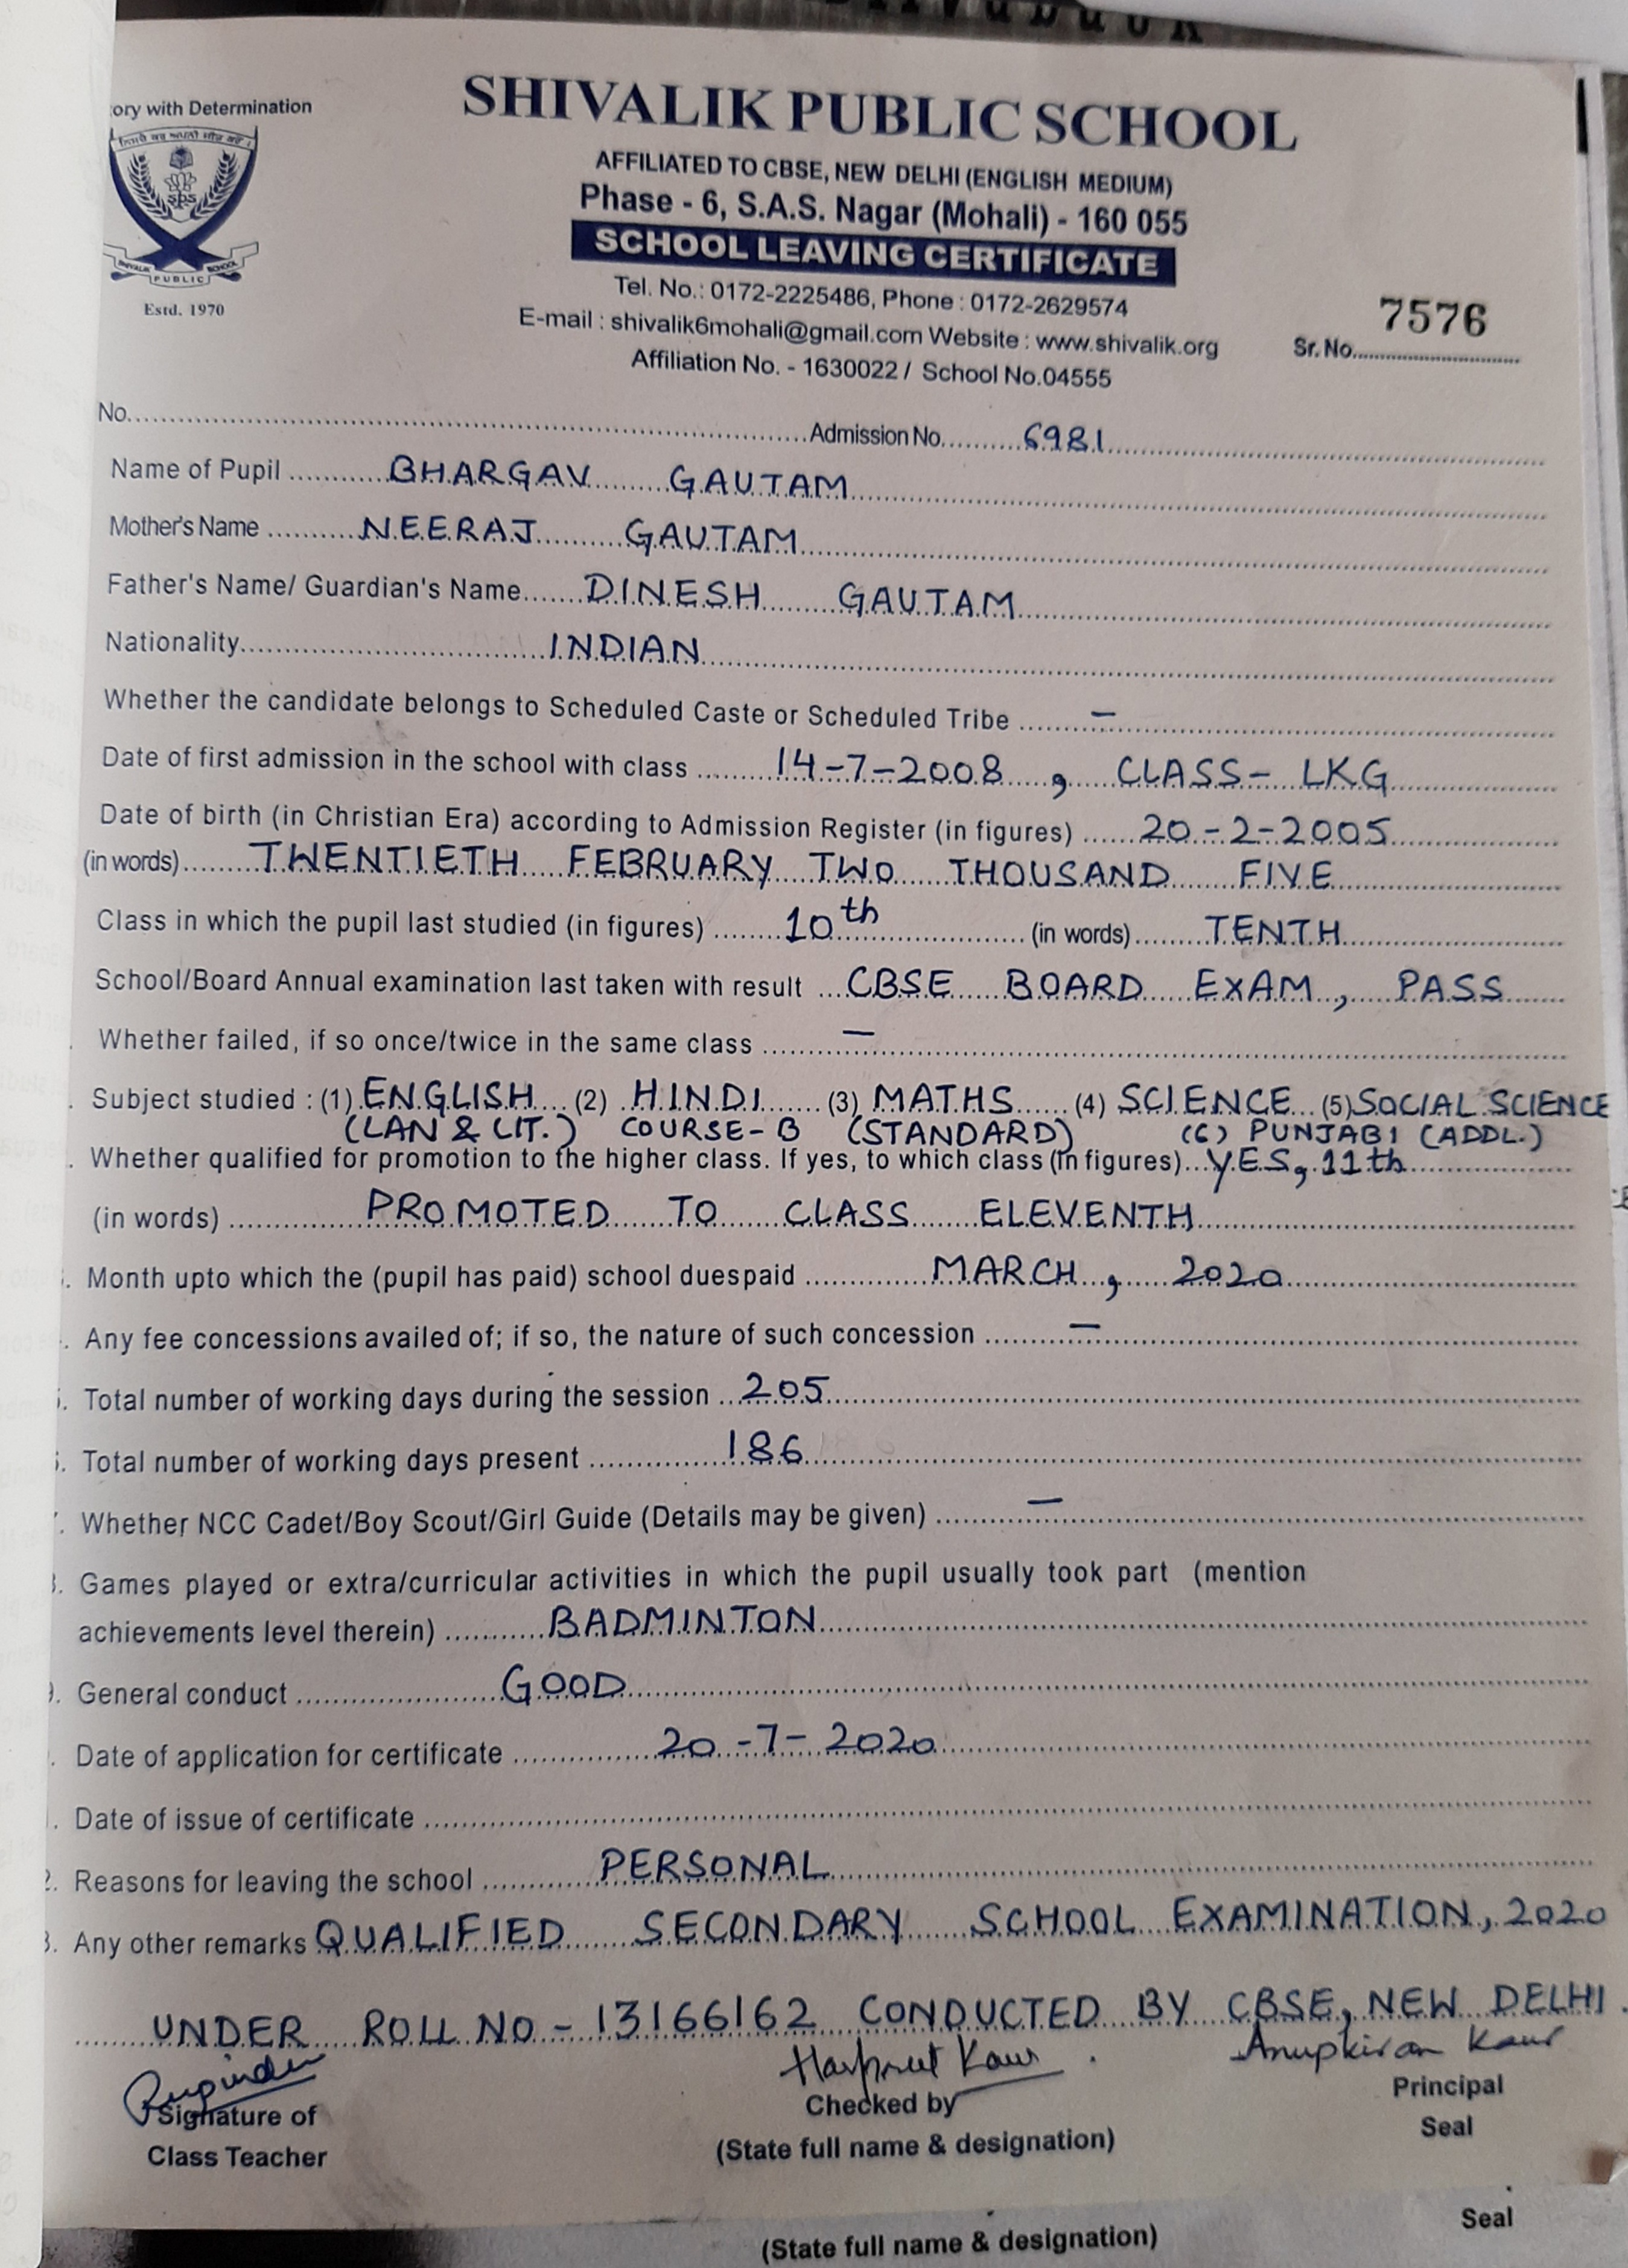 ory with Determination
SHIVALIK PUBLIC SCHOOL
AFFILIATED TO CBSE, NEW DELHI (ENGLISH MEDIUM)
Phase - 6, S.A.S. Nagar (Mohali) - 160 055
SCHOOL LEAVING CERTIFICATE
SPS
SHIVALIK PUBLIC SCHOOL
Estd. 1970
Tel. No.: 0172-2225486, Phone : 0172-2629574
E-mail : shivalik6mohali@gmail.com Website : www.shivalik.org
Affiliation No. - 1630022 / School No.04555
Sr. No. 7576
No. Admission No. 6981
Name of Pupil BHARGAV GAUTAM
Mother's Name NEERAJ GAUTAM
Father's Name/ Guardian's Name DINESH GAUTAM
Nationality INDIAN
Whether the candidate belongs to Scheduled Caste or Scheduled Tribe –
Date of first admission in the school with class 14-7-2008, CLASS- LKG
Date of birth (in Christian Era) according to Admission Register (in figures) 20-2-2005
(in words) TWENTIETH FEBRUARY TWO THOUSAND FIVE
Class in which the pupil last studied (in figures) 10th (in words) TENTH
School/Board Annual examination last taken with result CBSE BOARD EXAM, PASS
Whether failed, if so once/twice in the same class –
Subject studied : (1) ENGLISH (2) HINDI (3) MATHS (4) SCIENCE (5) SOCIAL SCIENCE
(LAN & LIT.) COURSE-B (STANDARD) (6) PUNJABI (ADDL.)
Whether qualified for promotion to the higher class. If yes, to which class (in figures) YES, 11th
(in words) PROMOTED TO CLASS ELEVENTH
Month upto which the (pupil has paid) school duespaid MARCH, 2020
Any fee concessions availed of; if so, the nature of such concession –
Total number of working days during the session 205
Total number of working days present 186
Whether NCC Cadet/Boy Scout/Girl Guide (Details may be given) –
Games played or extra/curricular activities in which the pupil usually took part (mention
achievements level therein) BADMINTON
General conduct GOOD
Date of application for certificate 20-7-2020
Date of issue of certificate
2. Reasons for leaving the school PERSONAL
3. Any other remarks QUALIFIED SECONDARY SCHOOL EXAMINATION, 2020
UNDER ROLL NO - 13166162 CONDUCTED BY CBSE, NEW DELHI.
Harpreet Kaur Anupkiran Kaur
Signature of Checked by Principal
Class Teacher (State full name & designation) Seal
Seal
(State full name & designation)